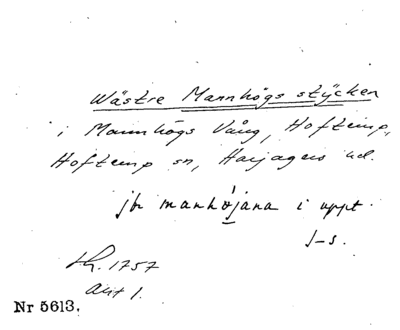 Wästre Mannhögs stÿcken
i Mannhögs Vång, Hofterup,
Hofterup sn, Harjagers hd.
jfr manhøjana i uppt.
J-s.
Lh. 1757
Akt 1.
Nr 5613.